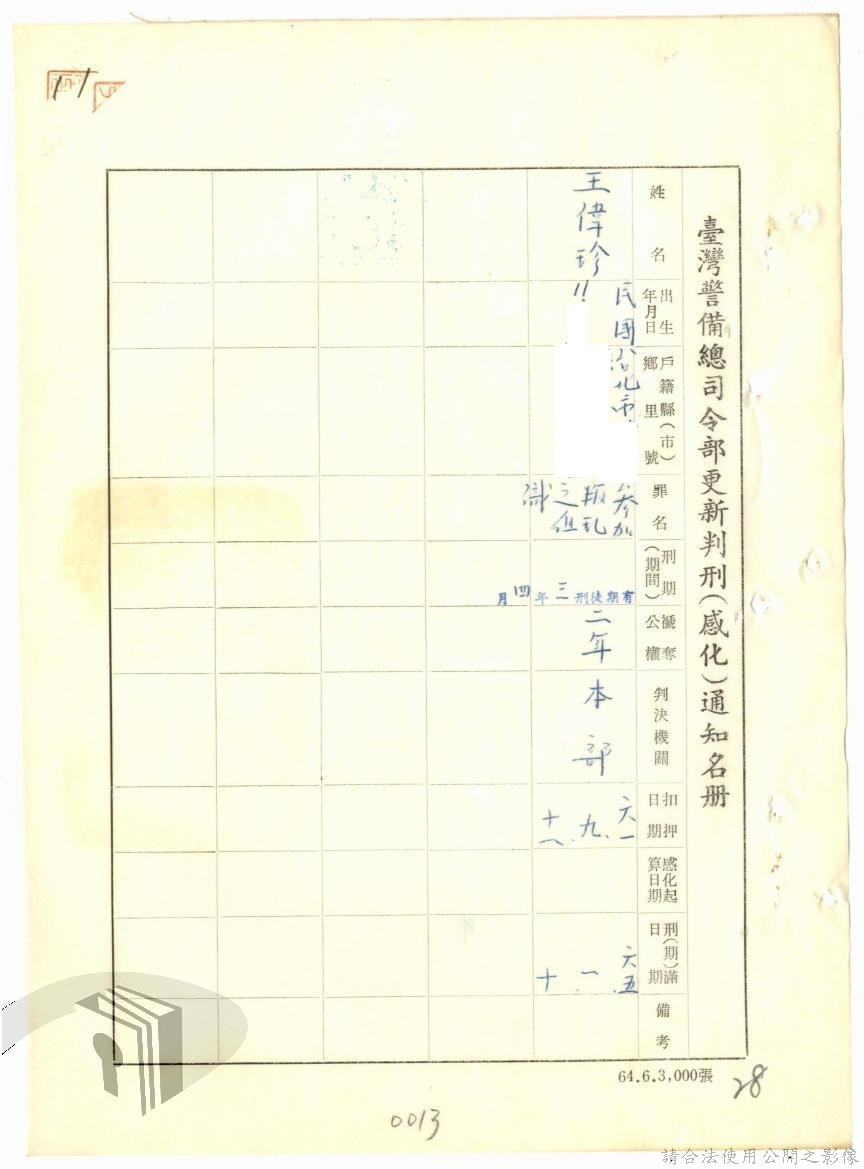 11
臺灣警備總司令部更新判刑(感化)通知名册
姓名
出生年月日
戶籍縣(市)鄉里號
罪名
刑期(期間)
褫奪公權
判決機關
扣押日期
感化起算日期
刑(期)滿日期
備考
王偉珍
民國
台北市
參加
叛乱
之组
織
有期徒刑三年四月
二年
本部
六一.
九.
十一
六五.
一.
十
64.6.3,000張
28
0013
請合法使用公開之影像